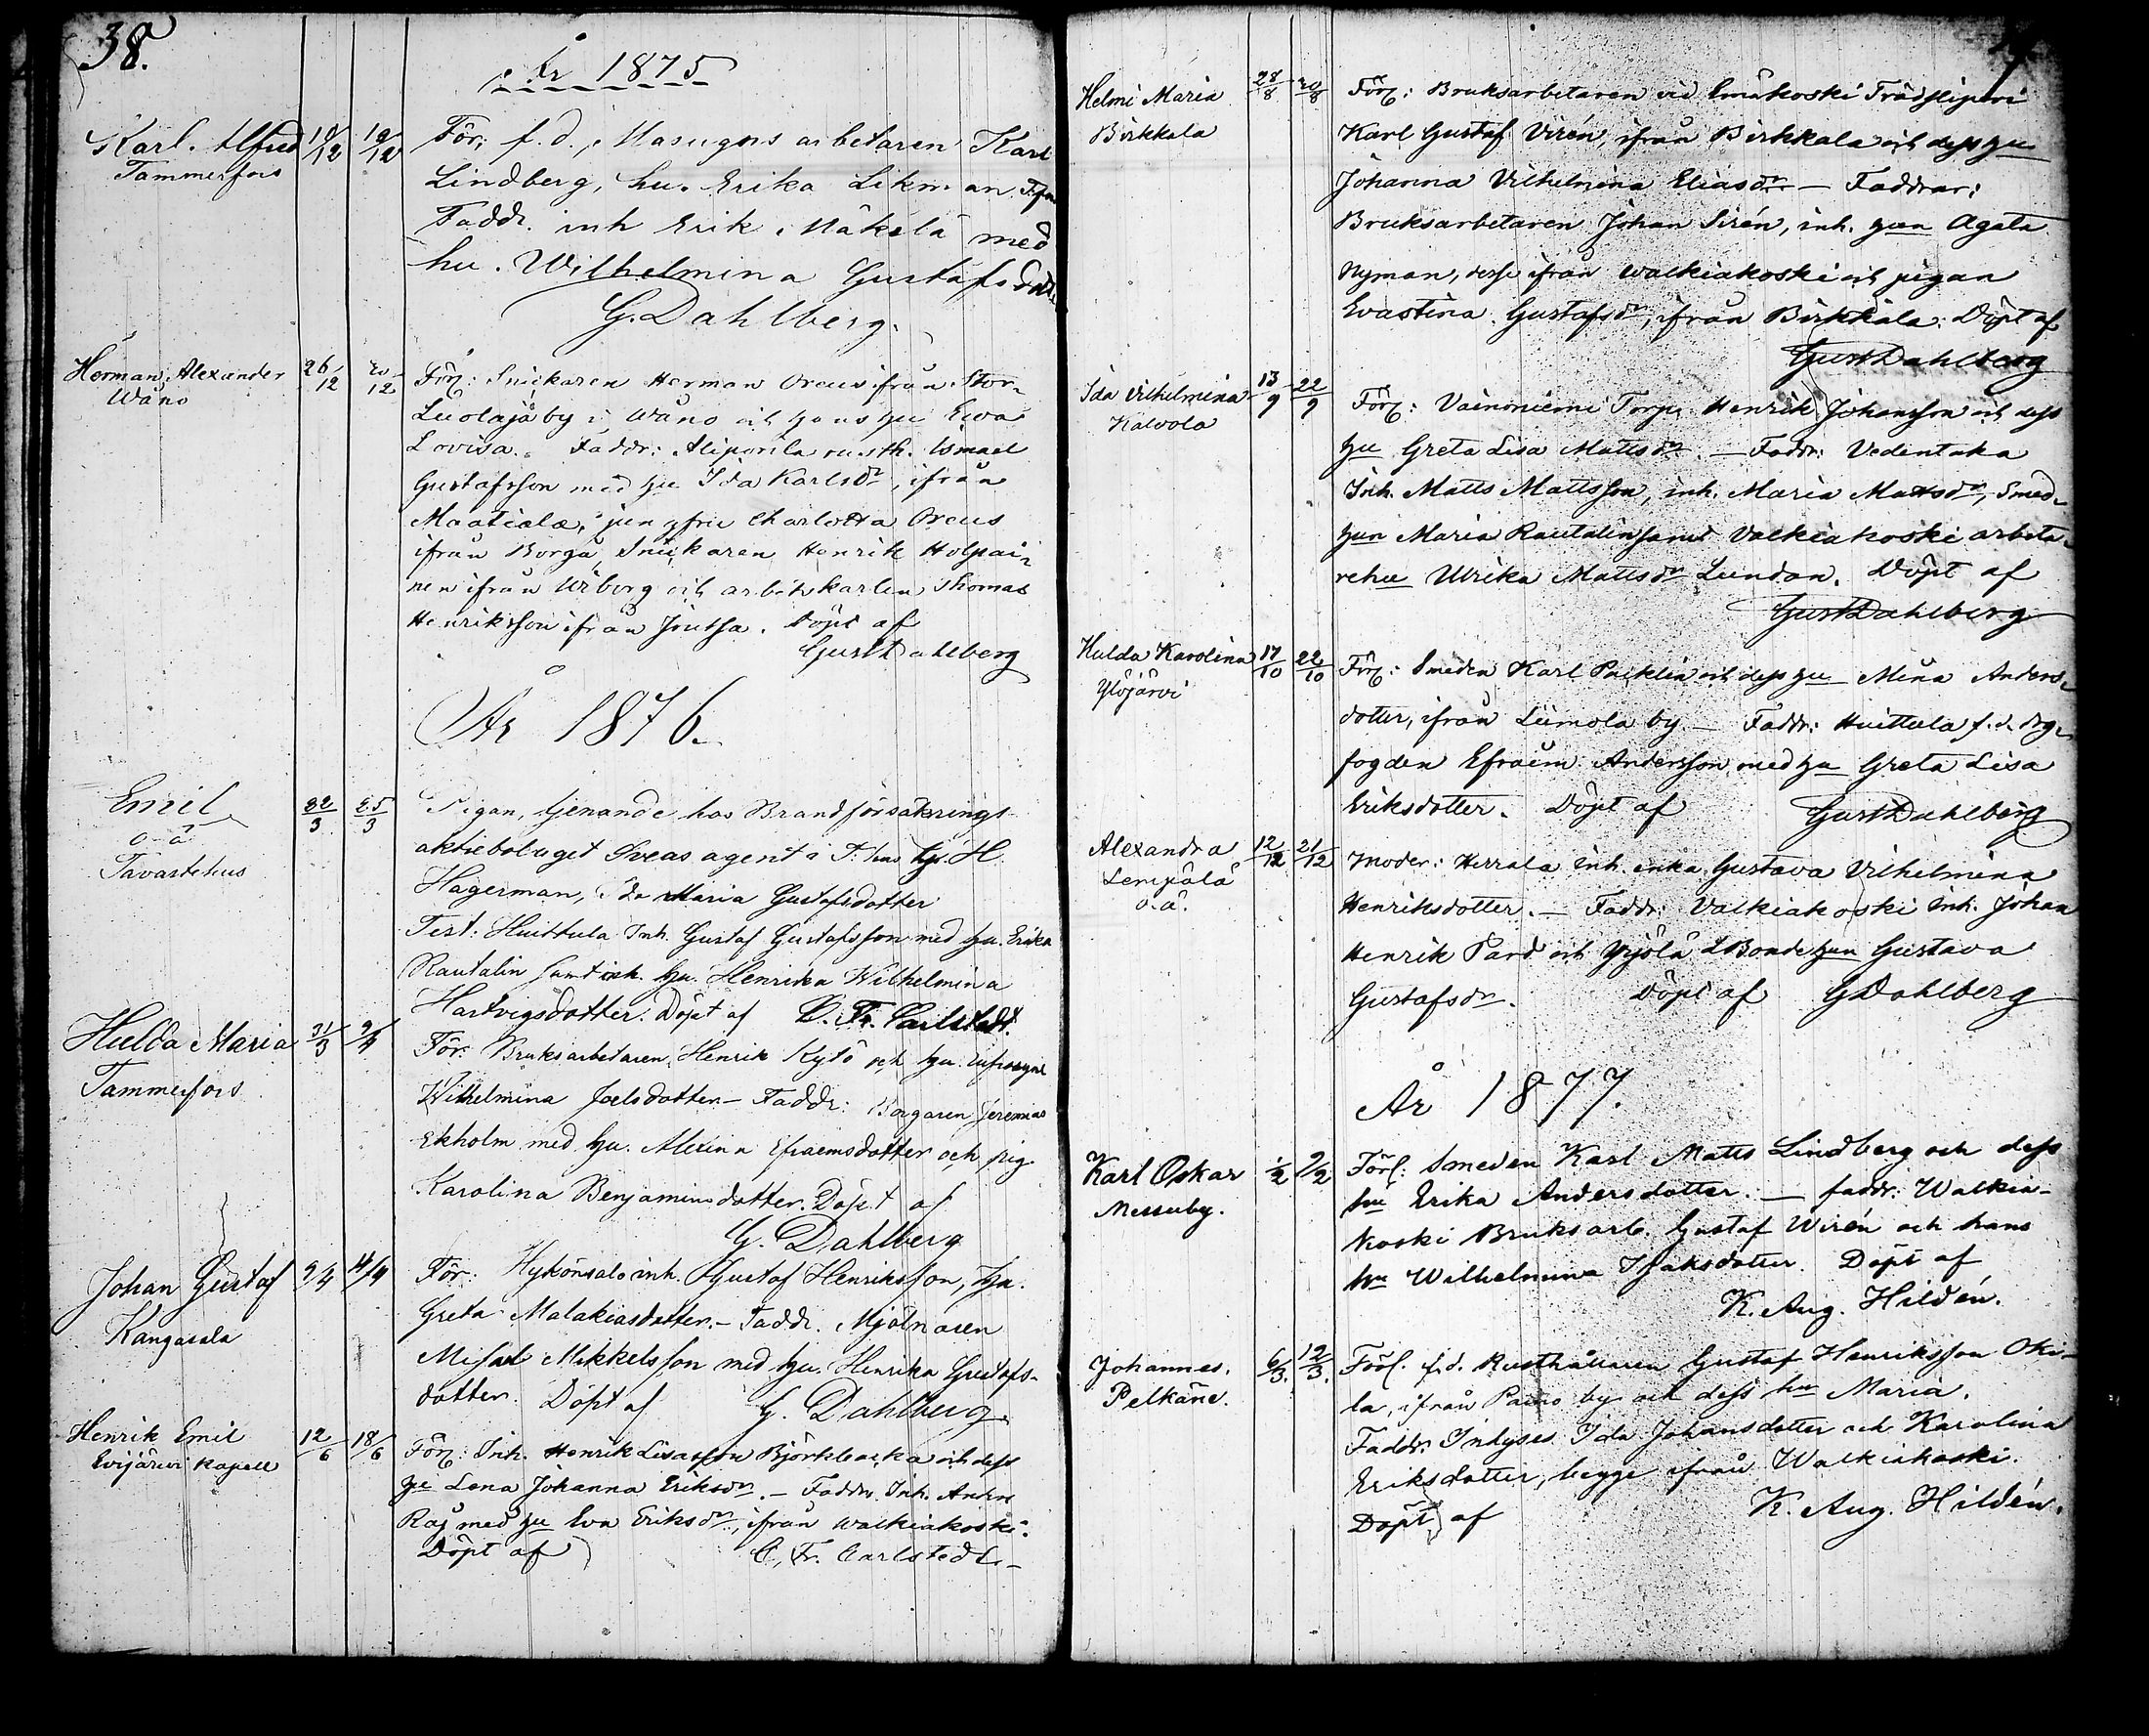 38.
År 1875
Karl Alfred 10/12 12/12 För: f.d. Masugns arbetaren Karl
Tammerfors Lindberg, hu. Erika Likman
Faddr. inh Erik Mäkelä med
hu. Wilhelmina Gustafsdotter
G. Dahlberg.
Herman Alexander 26/12 /12 Förℓ: Snickaren Herman Orcus ifrån Stor-
Wåno Luolaja by i Wånå och hans hu Ewa
Lovisa. Faddr: Aliporila rusth. Ismael
Gustafsson med hu Ida Karlsdr, ifrån
Maatiala, jungfru Charlotta Orcus
ifrån Borgå, Snickaren Henrik Holpai-
nen ifrån Wiborg och arbetskarlen Thomas
Henriksson ifrån Joutsa. Döpt af
Gust Dahlberg
År 1876.
Emil 22/3 25/3 Pigan, tjenande hos Brandförsäkrings
o-ä aktiebolaget Sveas agent i T:hus Hj. H.
Tavastehus Hagerman, Ida Maria Gustafsdotter
Test: Huittula Inh. Gustaf Gustafsson med hu. Erika
Rautalin samt inh. hu. Henrika Wilhelmina
Hartvigsdotter. Döpt af C. Fr. Carlstedt.
Hulda Maria 31/3 9/4 För: Bruksarbetaren Henrik Kytö och hu.
Tammerfors Wilhelmina Joelsdotter - Faddr: Borgaren Jeremias
Ekholm med hu. Alexina Efraemsdotter och pig.
Karolina Benjaminsdotter. Döpt af
G. Dahlberg
Johan Gustaf 9/4 14/4 För: Hykönsalo inh. Gustaf Henriksson, hu.
Kangasala Greta Malakiasdotter. - Faddr. Mjölnaren
Misael Mikkelsson med hu. Henrika Gustafs-
dotter. Döpt af G. Dahlberg.
Henrik Emil 12/6 18/6 Förℓ: Inh. Henrik Lisasson Björkbacka och dess
Evijärvi Kapell hu Lena Johanna Eriksdr. - Faddr. Inh. Anders
Raj med hu Eva Eriksdr, ifrån Walkiakoski.
Döpt af C. Fr. Carlstedt. -
Helmi Maria 28/8 30/8 Förℓ: Bruksarbetaren vid Emäkoski Trädsliperi
Birkkala Karl Gustaf Virén, ifrån Birkkala och dess hu
Johanna Vilhelmina Eliasdr - Faddrar:
Bruksarbetaren Johan Sirén, inh. hun Agata
Nyman, desse ifrån Walkiakoski och pigan
Evastina Gustafsdr, ifrån Birkkala. Döpt af
Gust Dahlberg
Ida Vilhelmina 13/9 22/9 Förℓ: Vainoniemi Torp. Henrik Johansson och dess
Kalvola hu Greta Lisa Mattsdr. - Faddr: Vedentaka
Inh. Matts Mattsson, inh. Maria Mattsdr, Smed-
hun Maria Rautalin samt Valkiakoski arbeta-
rehu Ulrika Mattsdr Lundan. Döpt af
Gust Dahlberg
Hulda Karolina 17/10 22/10 Förℓ: Smeden Karl Packlin och dess hu Mina Anders-
Ylöjärvi dotter, ifrån Liimola by. - Faddr: Huittula f.d.
fogden Efraim Andersson med hu Greta Lisa
Eriksdotter. Döpt af Gust Dahlberg
Alexandra 12/12 21/12 Moder: Herrala inh. enka Gustava Vilhelmina
Lempälä Henriksdotter. - Faddr: Valkiakoski inh. Johan
o.ä. Henrik Pard och Yijölä LBonde hun Gustava
Gustafsdr. Döpt af G Dahlberg
År 1877.
Karl Oskar 1/2 9/2 Förℓ: Smeden Karl Matts Lindberg och dess
Messuby. hu Erika Andersdotter. - faddr: Walkia-
koski Bruksarb. Gustaf Wirén och hans
hu Wilhelmina Isaksdotter. Döpt af
K. Aug. Hildén.
Johannes. 6/3. 12/3. Förℓ. f.d. Rusthållaren Gustaf Henriksson Oki-
Pelkäne. la, ifrån Paino by och dess hu Maria.
Faddr: Inhyses Ida Johansdotter och Karolina
Eriksdotter, begge ifrån Walkiakoski.
Döpt af K. Aug. Hildén.